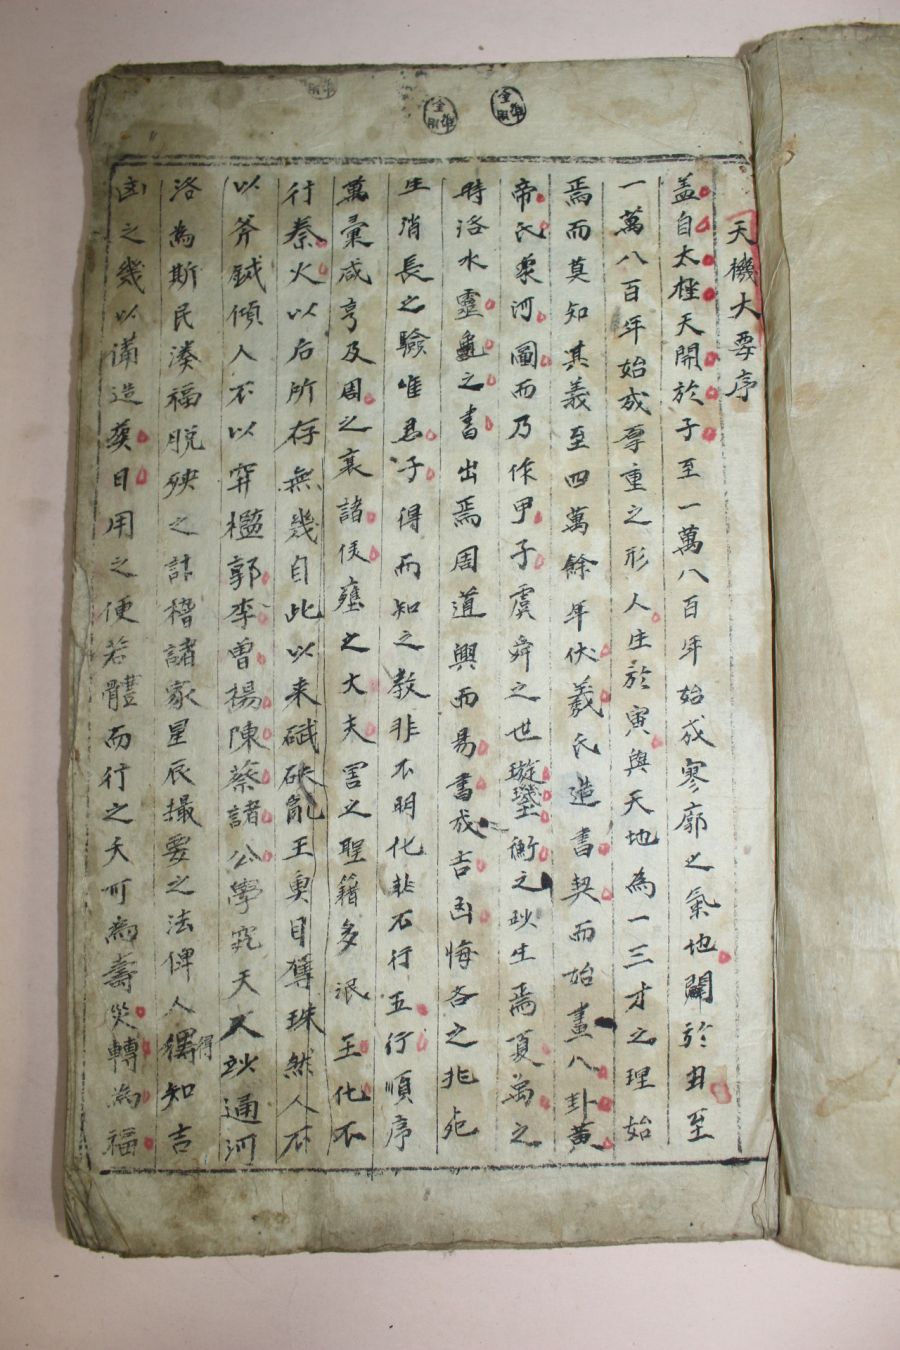 天機大要序
盖自太極天開於子至一萬八百年始成寥廓之氣地闢於丑至
一萬八百年始成厚重之形人生於寅與天地為一三才之理始
焉而莫知其義至四萬餘年伏羲氏造書契而始畫八卦黃
帝氏象河圖而乃作甲子虞舜之世璇璣衡之玅生焉夏萬之
時洛水靈龜之書出焉周道興而易書成吉凶悔吝之兆
生消長之驗唯君子得而知之教非不明化非不行五行順序
萬彙咸亨及周之衰諸侯壅之大夫害之聖籍多泯王化不
行秦火以后所存無幾自此以来碔砆亂王奥目隻珠然人不
以斧鉞傾人不以穽檻郭李曽楊陳蔡諸公學究天人玅通河
洛為斯民湊福脱殃之計稽諸家星辰撮要之法俾人得知吉
凶之幾以備造葬日用之便若體而行之夭可為壽災轉為福